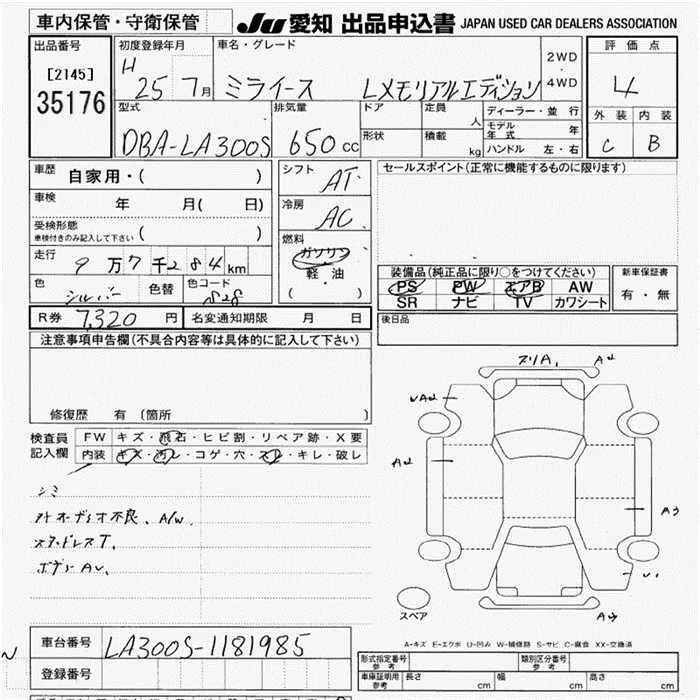 車内保管・守衛保管 JU 愛知 出品申込書 JAPAN USED CAR DEALERS ASSOCIATION
出品番号 初度登録年月 車名・グレード 2WD・4WD 評価点
[2145] H 25 7月 ミライース Lメモリアルエディション 4
35176
型式 排気量 ドア 定員 人 ディーラー・並行 外装 内装
DBA-LA300S 650cc 形状 積載 kg モデル年式 年 C B
ハンドル 左・右
車歴 自家用・( ) シフト AT セールスポイント(正常に機能するものに限ります)
車検 年 月( 日) 冷房 AC
受検形態 ( )
車検付きのみ記入して下さい 燃料 ガソリン
走行 9万7千284km 軽・油 装備品(純正品に限り○をつけてください) 新車保証書
色 シルバー 色替 色コード S28 ( ) PS PW エアB AW 有・無
SR ナビ TV カワシート
R券 7,320円 名変通知期限 月 日 後日品
注意事項申告欄(不具合内容等は具体的に記入して下さい)
修復歴 有(箇所 )
検査員記入欄 FW キズ・飛石・ヒビ割・リペア跡・X要
内装 キズ・汚レ・コゲ・穴・スレ・キレ・破レ
シミ
A/W
スタッドレスT.
スペア
A-キズ E-エクボ U-凹み W-補修跡 S-サビ C-腐食 XX-交換済
車台番号 LA300S-1181985
登録番号
形式指定番号 参考 類別区分番号 参考
車庫証明用 参考 長さ cm 幅 cm 高さ cm